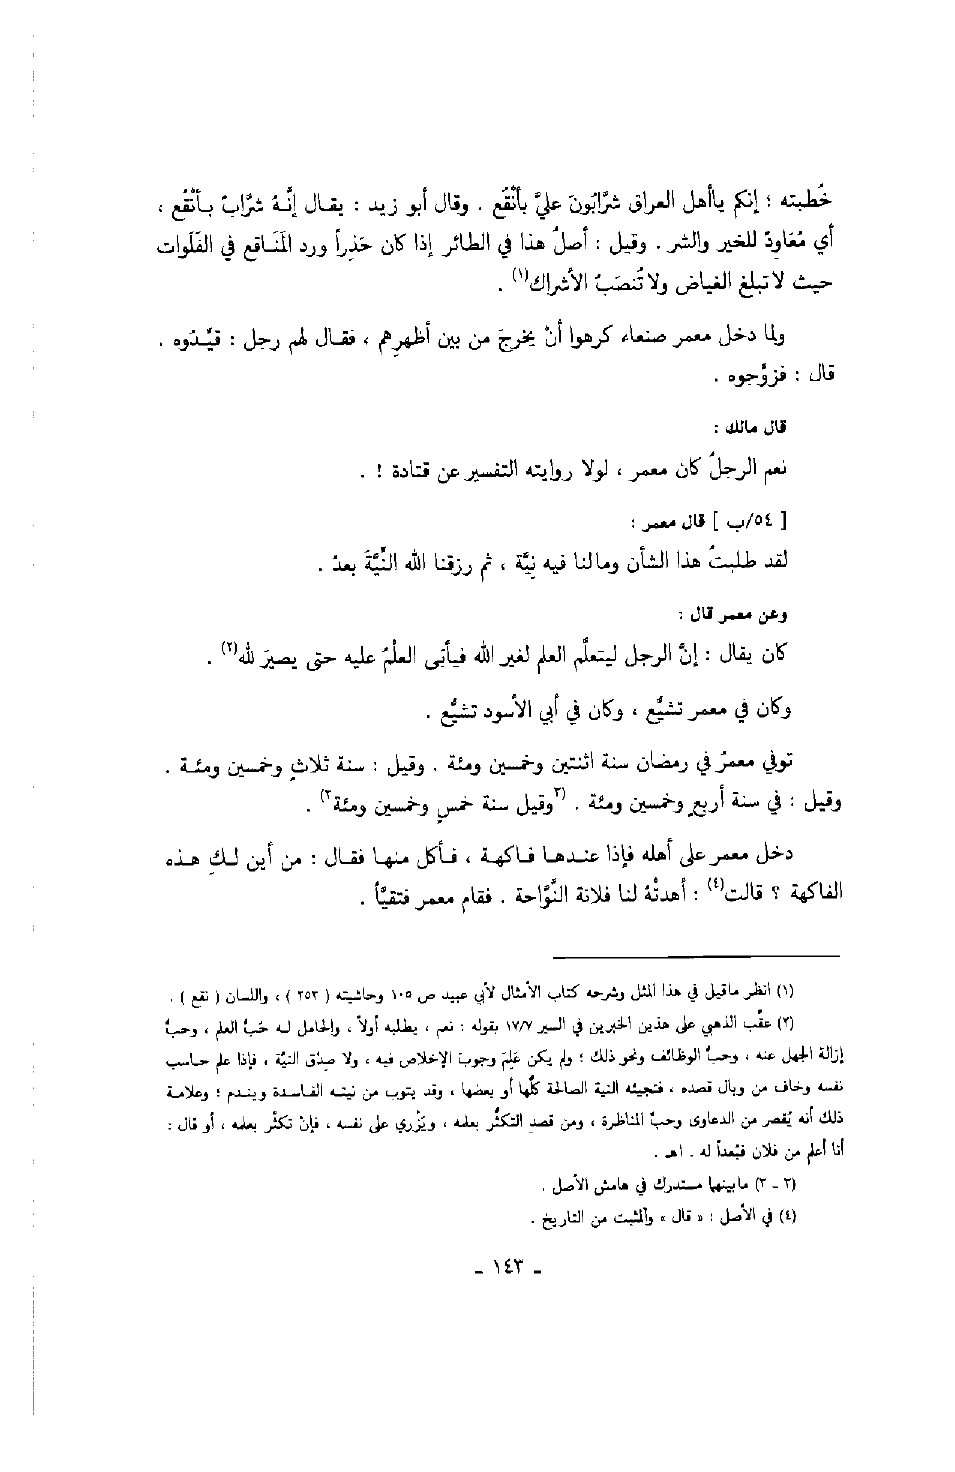 خُطبته ؛ إنكم ياأهل العراق شرَّابُونَ عليَّ بأنْقُع . وقال أبو زيد : يقـال إنَّـهُ شرَّابٌ بـأنْقُع ،
أي مُعَاوِدٌ للخير والشر . وقيل : أصلُ هذا في الطائر إذا كان حَذِراً ورد المَنَـاقع في الفَلَوات
حيث لاتبلغ الغياض ولاتُنصَبُ الأشراك(١) .
ولما دخل معمر صنعاء كرهوا أنْ يخرجَ من بين أظهرِهم ، فقـال لهم رجل : قيِّـدُوه .
قال : فزوِّجوه .
قال مالك :
نعم الرجلُ كان معمر ، لولا روايته التفسير عن قتادة ! .
[ ٥٤/ب ] قال معمر :
لقد طلبتُ هذا الشأن ومالنا فيه نِيَّة ، ثم رزقنا الله النِّيَّةَ بعدُ .
وعن معمر قال :
كان يقال : إنَّ الرجل ليتعلَّم العلم لغير الله فيـأبى العلْمُ عليه حتى يصيرَ لله(٢) .
وكان في معمر تشيُّع ، وكان في أبي الأسود تشيُّع .
توفي معمرٌ في رمضان سنة اثنتين وخمسين ومئة . وقيل : سنة ثلاثٍ وخمسين ومئـة .
وقيل : في سنة أربعٍ وخمسين ومئة . (٣وقيل سنة خمسٍ وخمسين ومئة٣) .
دخل معمر على أهله فإذا عنـدهـا فـاكهـة ، فـأكل منهـا فقـال : من أين لـكِ هـذه
الفاكهة ؟ قالت(٤) : أهدتْهُ لنا فلانة النَّوَّاحة . فقام معمر فتقيَّأ .
(١) انظر ماقيل في هذا المثل وشرحه كتاب الأمثال لأبي عبيد ص ١٠٥ وحاشيته ( ٢٥٣ ) ، واللسان ( نقع ) .
(٢) عقَّب الذهبي على هذين الخبرين في السير ١٧/٧ بقوله : نعم ، يطلبه أولاً ، والحامل لـه حُبُّ العلم ، وحبُّ
إزالة الجهل عنه ، وحبُّ الوظائف ونحو ذلك ؛ ولم يكن عَلِمَ وجوب الإخلاص فيه ، ولا صِدْق النيَّة ، فإذا علم حـاسب
نفسه وخاف من وبال قصده ، فتجيئه النية الصالحة كُلُّها أو بعضها ، وقد يتوب من نيتـه الفـاسـدة وينـدم ؛ وعلامـة
ذلك أنه يُقصر من الدعاوى وحبِّ المناظرة ، ومن قصد التكثُّر بعلمه ، ويَزْري على نفسه ، فإنْ تكثَّر بعلمه ، أو قال :
أنا أعلم من فلان فبُعداً له . اهـ .
(٣ - ٣) مابينهما مستدرك في هامش الأصل .
(٤) في الأصل : « قال » والمثبت من التاريخ .
- ١٤٣ -